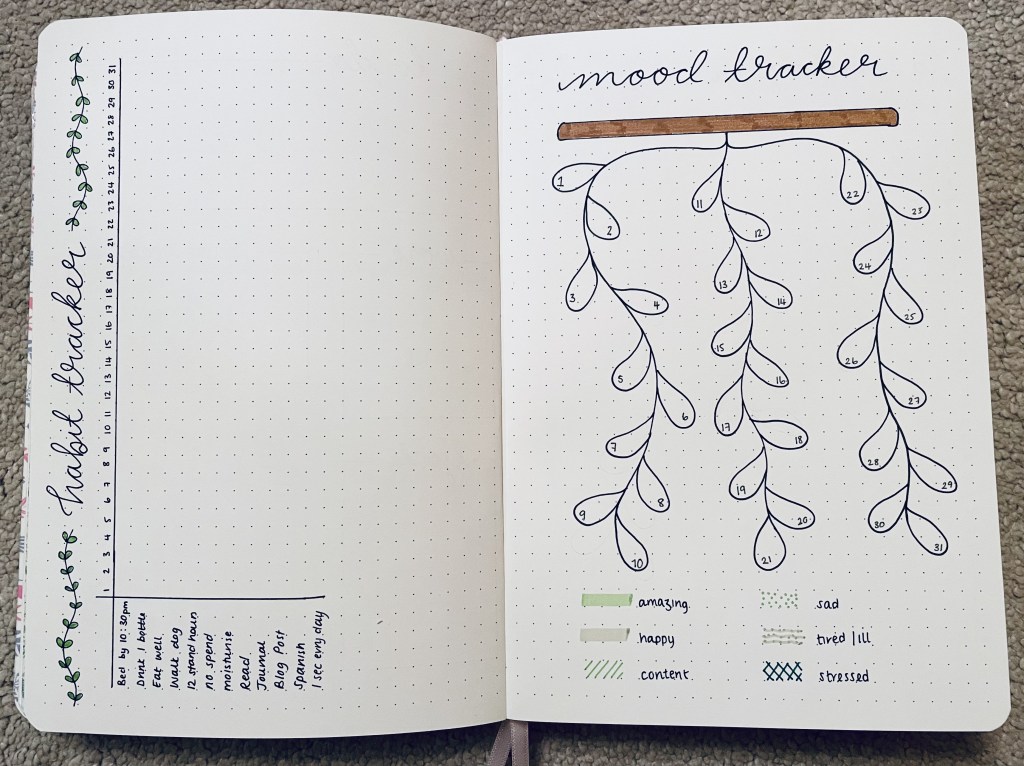 habit tracker
1 2 3 4 5 6 7 8 9 10 11 12 13 14 15 16 17 18 19 20 21 22 23 24 25 26 27 28 29 30 31
Bed by 10:30pm
Drink 1 bottle
Eat well
Walk dog
12 stand hours
no spend
moisturise
Read
Journal
Blog Post
Spanish
1 sec every day
mood tracker
1
2
3
4
5
6
7
8
9
10
11
12
13
14
15
16
17
18
19
20
21
22
23
24
25
26
27
28
29
30
31
amazing
happy
content
sad
tired / ill
stressed